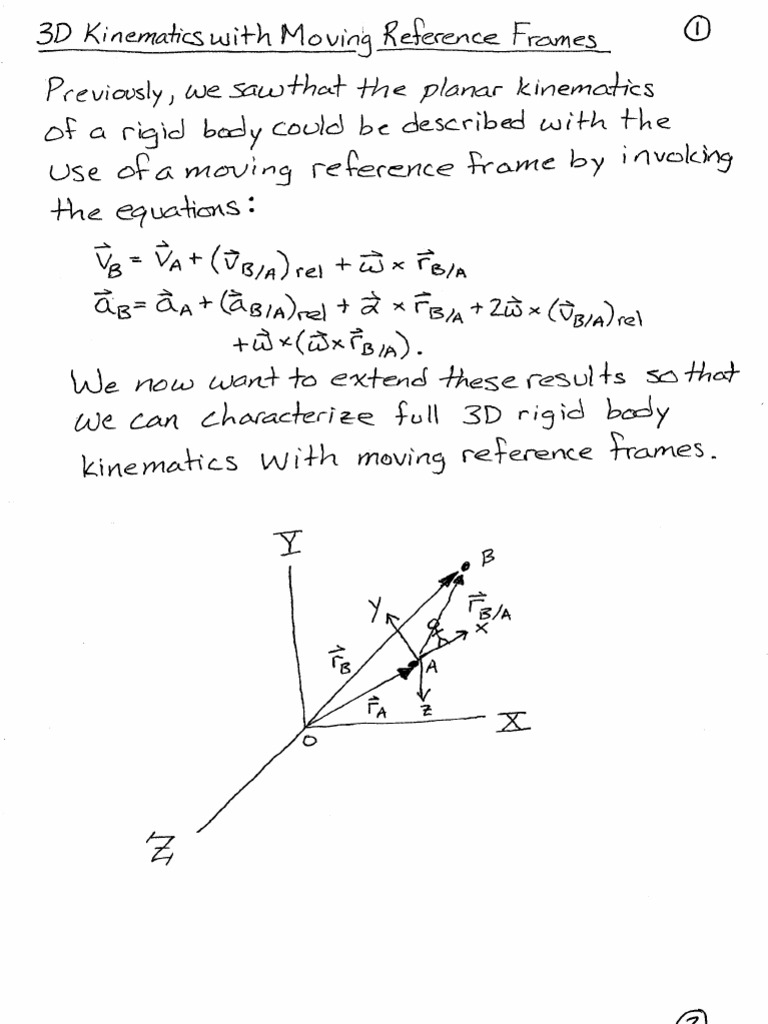 3D Kinematics with Moving Reference Frames ①
Previously, we saw that the planar kinematics
of a rigid body could be described with the
use of a moving reference frame by invoking
the equations:
v⃗_B = v⃗_A + (v⃗_B/A)rel + ω⃗ × r⃗_B/A
a⃗_B = a⃗_A + (a⃗_B/A)rel + α⃗ × r⃗_B/A + 2ω⃗ × (v⃗_B/A)rel
+ ω⃗ × (ω⃗ × r⃗_B/A).
We now want to extend these results so that
we can characterize full 3D rigid body
kinematics with moving reference frames.
Y
B
y
r⃗_B/A
x
r⃗_B
A
r⃗_A
z
X
O
Z